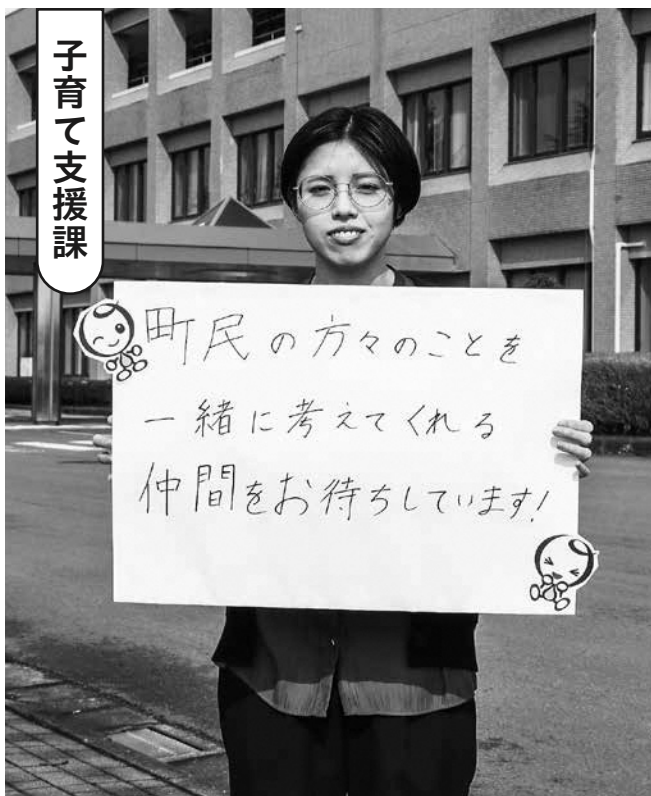 子育て支援課
町民の方々のことを
一緒に考えてくれる
仲間をお待ちしています!